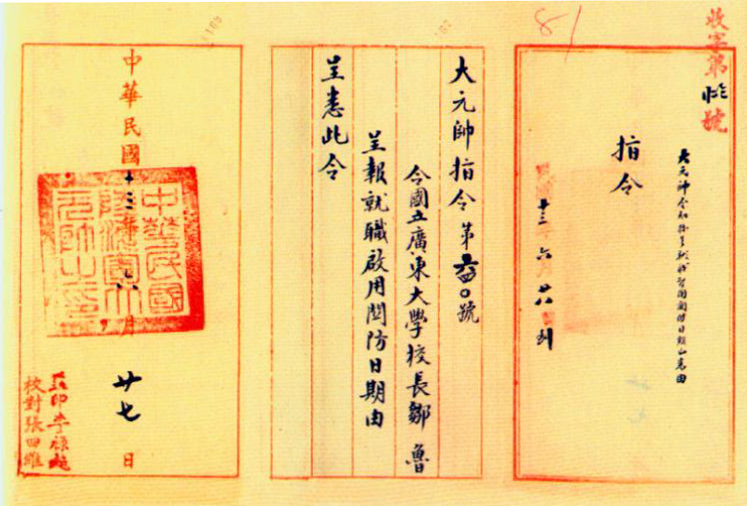 收字第號
大元帥令
指令
十三 六月廿八 到
大元帥指令第六四〇號
令國立廣東大學校長鄒魯
呈報就職啟用關防日期由
呈悉此令
中華民國十三年六月廿七日
中華民國
陸海軍大
元帥之印
監印李祿超
校對張田維